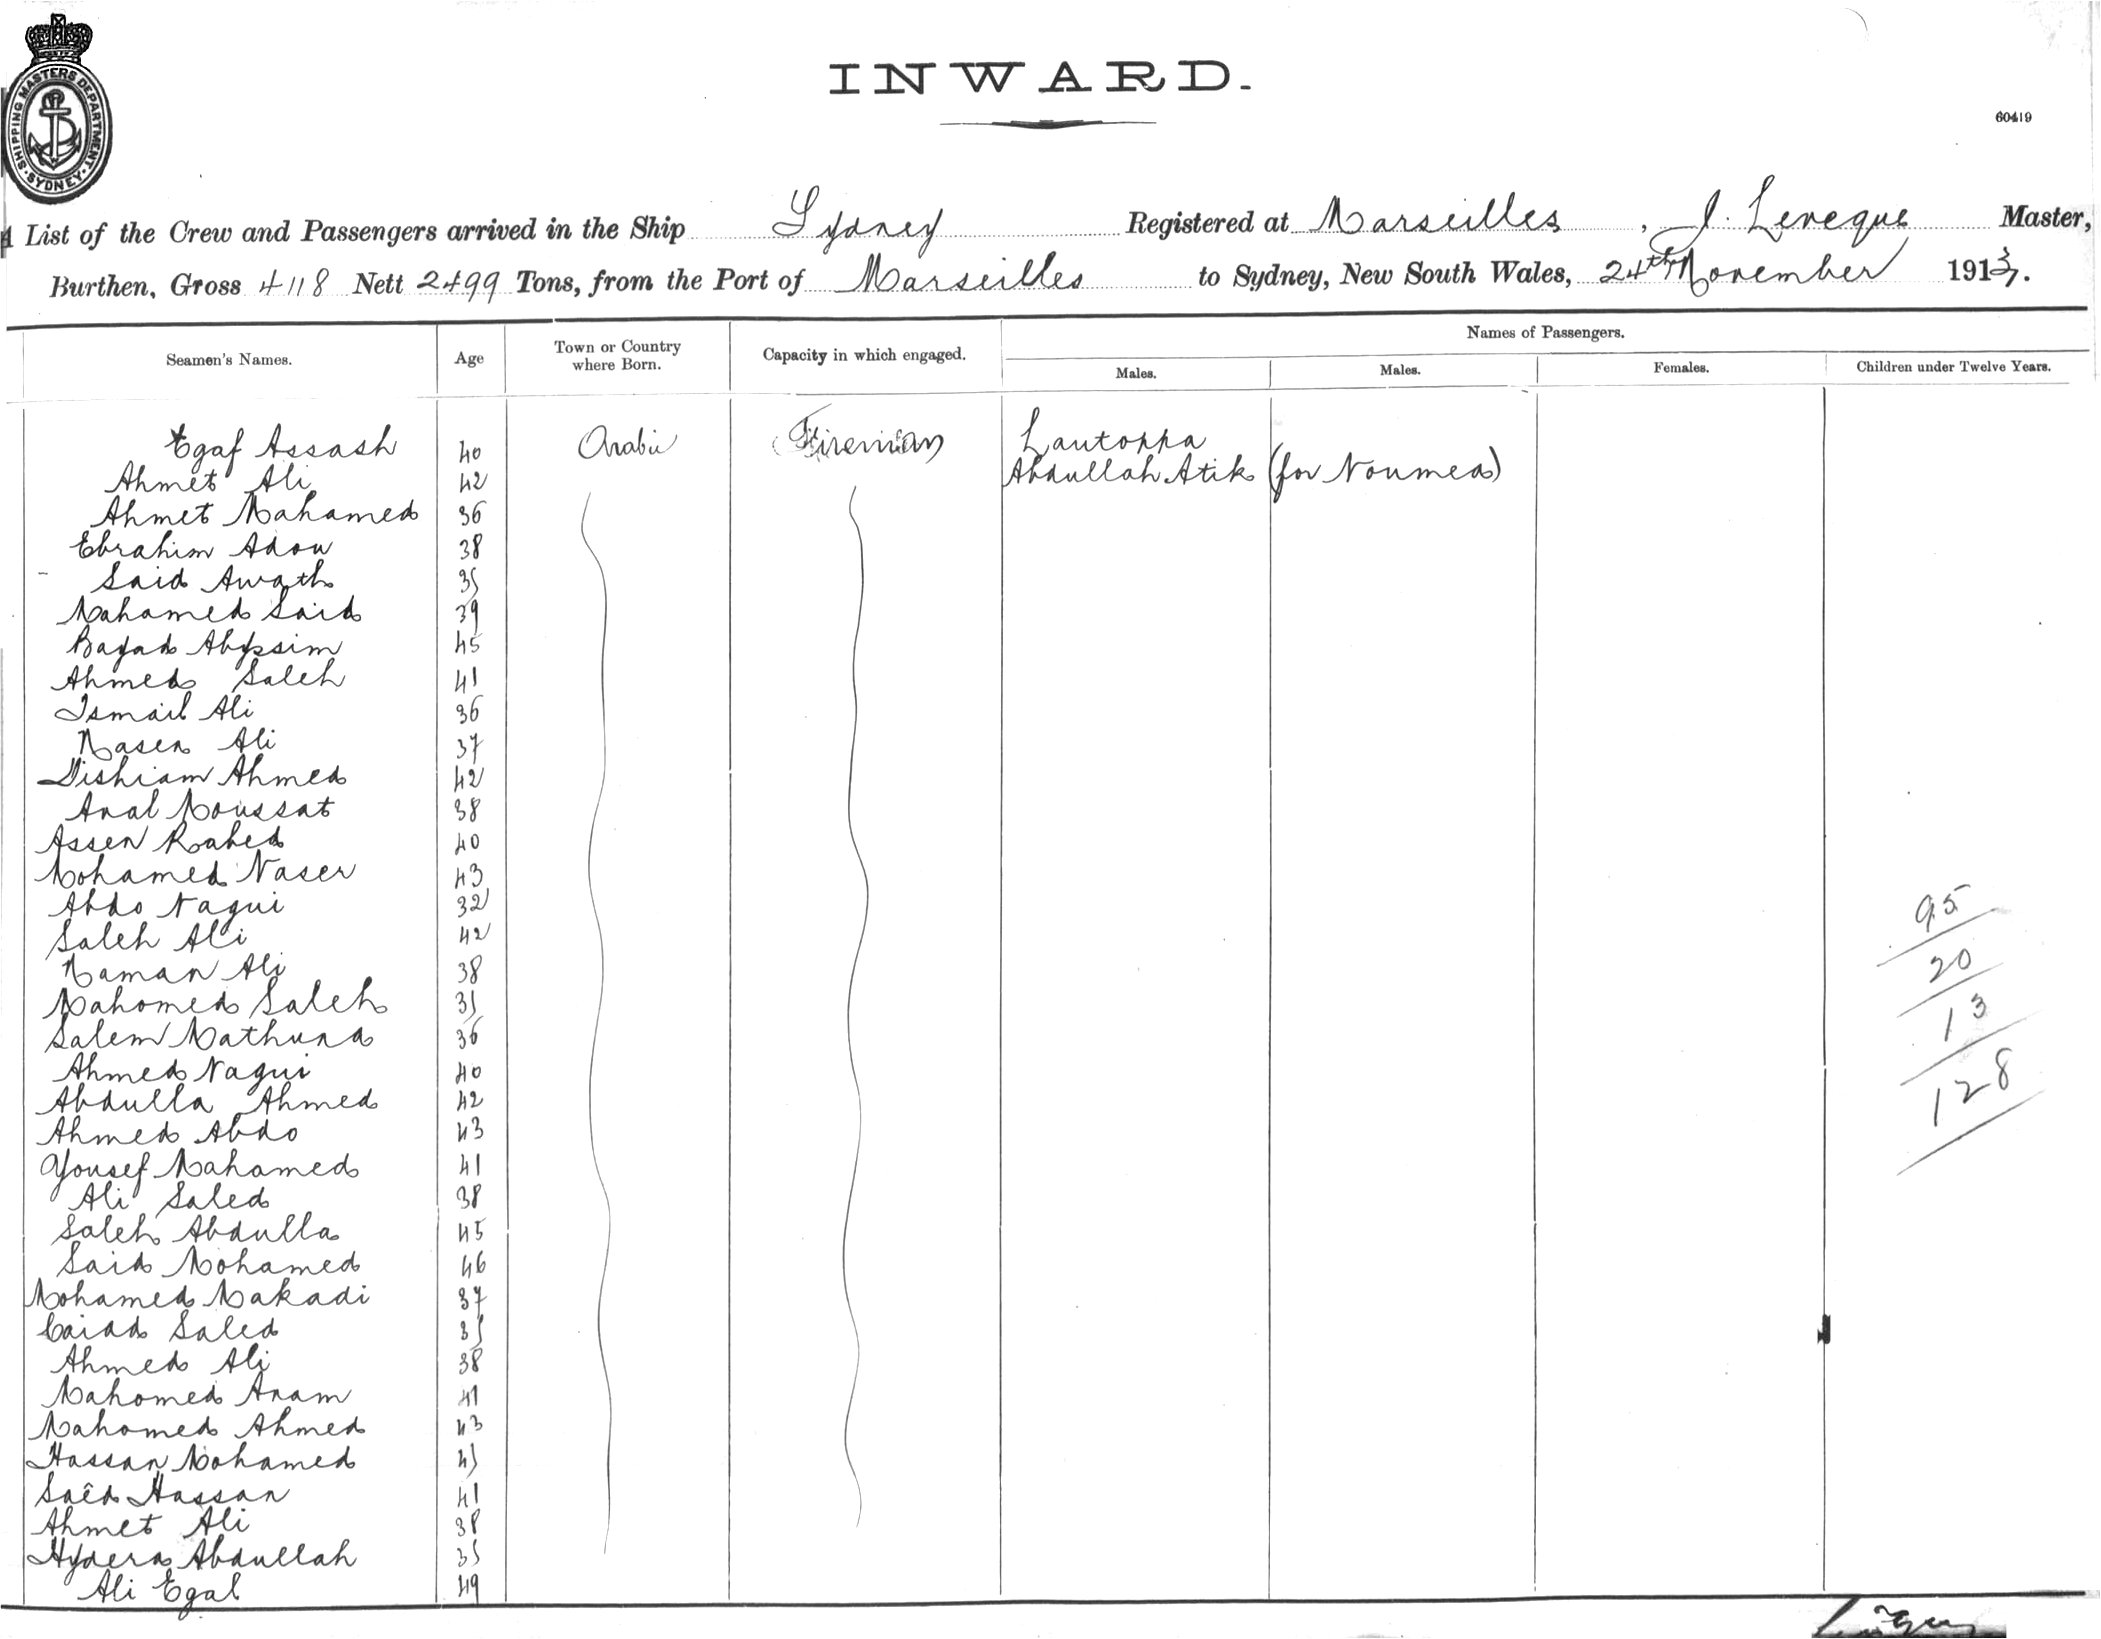 SHIPPING MASTERS DEPARTMENT. SYDNEY.
INWARD.
60419
List of the Crew and Passengers arrived in the Ship Sydney Registered at Marseilles, J. Leveque Master,
Burthen, Gross 4118 Nett 2499 Tons, from the Port of Marseilles to Sydney, New South Wales, 24th November 1913.
Seamen's Names. Age Town or Country where Born. Capacity in which engaged. Names of Passengers.
Males. Males. Females. Children under Twelve Years.
Egaf Assash 40 Arabie Fireman Lautoppa
Ahmet Ali 42 Abdullah Atik (for Noumea)
Ahmet Mahamed 36
Ebrahim Adou 38
Said Awath 35
Mahamed Said 39
Bayad Abyssim 45
Ahmed Saleh 41
Ismail Ali 36
Naser Ali 37
Dishiam Ahmed 42
Anal Moussat 38
Assen Rabed 40
Mohamed Naser 43
Abdo Nagui 32
Saleh Ali 42
Naman Ali 38
Mahomed Saleh 35
Salem Mathuna 36
Ahmed Nagui 40
Abdulla Ahmed 42
Ahmed Abdo 43
Yousef Mahamed 41
Ali Saled 38
Saleh Abdulla 45
Said Mohamed 46
Mohamed Makadi 37
Caiad Saled 35
Ahmed Ali 38
Mahomed Anam 41
Mahomed Ahmed 43
Hassan Mohamed 45
Saêd Hassan 41
Ahmet Ali 38
Hydera Abdullah 35
Ali Egal 49
95
20
13
128